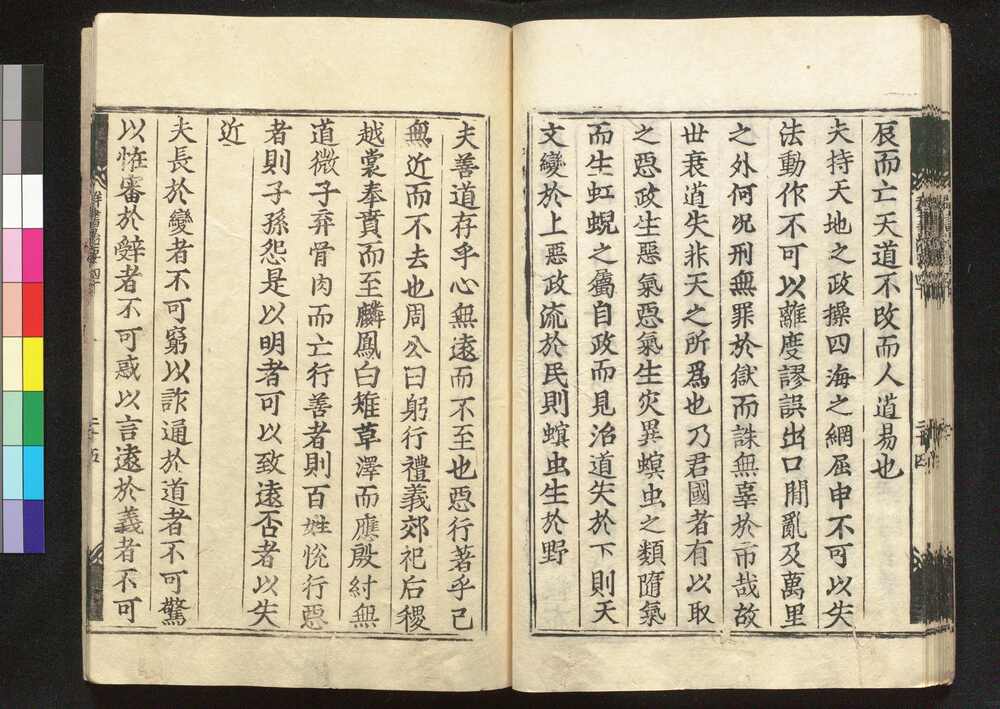 辰而亡天道不改而人道易也
夫持天地之政操四海之綱屈申不可以失
法動作不可以離度謬誤出口則亂及萬里
之外何況刑無罪於獄而誅無辜於市哉故
世衰道失非天之所爲也乃君國者有以取
之惡政生惡氣惡氣生灾異螟虫之類隨氣
而生虹蜺之屬自政而見治道失於下則天
文變於上惡政流於民則螟虫生於野
夫善道存乎心無遠而不至也惡行著乎己
無近而不去也周公曰躬行禮義郊祀后稷
越裳奉貢而至麟鳳白雉草澤而應殷紂無
道微子弃骨肉而亡行善者則百姓悅行惡
者則子孫怨是以明者可以致遠否者以失
近
夫長於變者不可窮以詐通於道者不可驚
以恠審於辤者不可惑以言遠於義者不可
群書治要四十
二十五